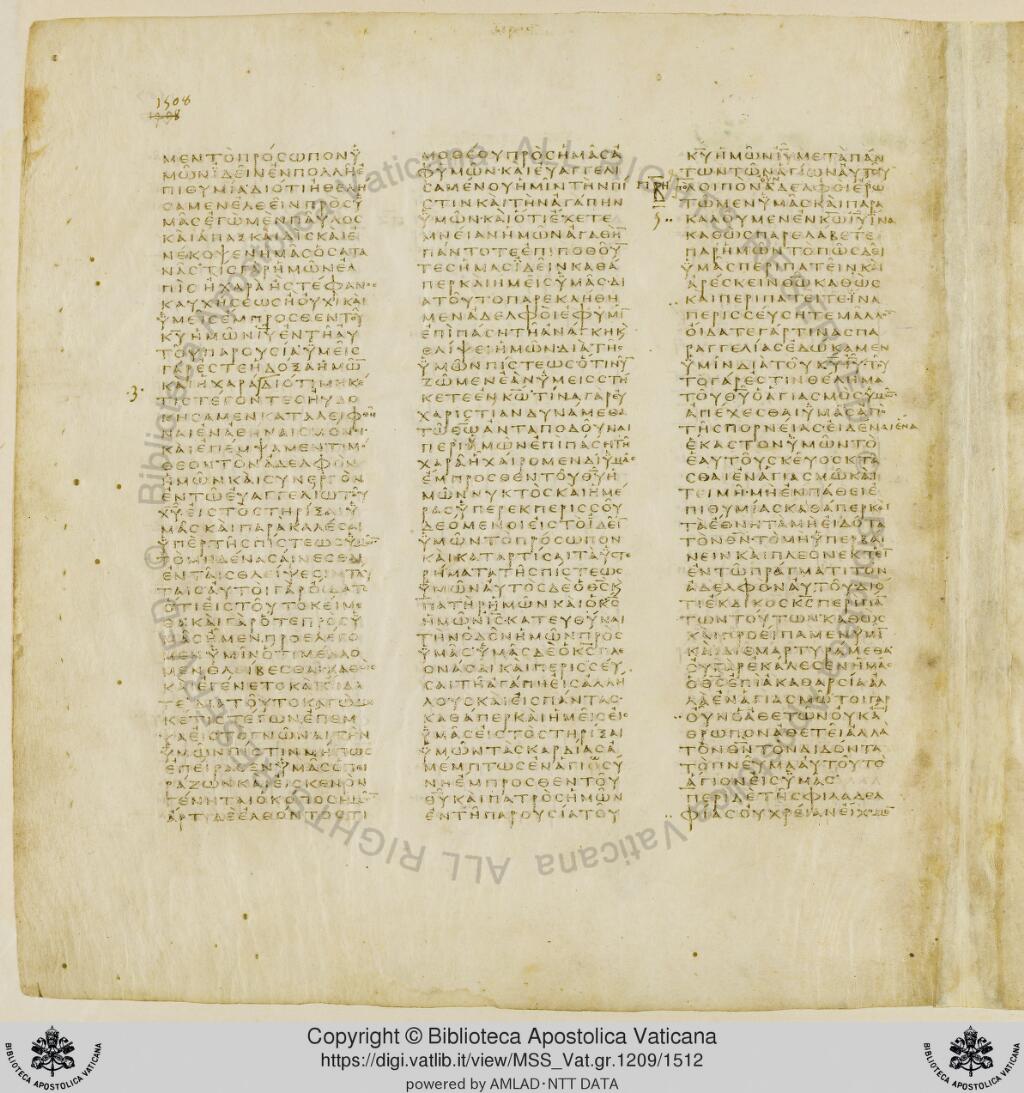 1508
ΜΕΝΤΟΠΡΟΣΩΠΟΝΥ
ΜΩΝΙΔΕΙΝΕΝΠΟΛΛΗΕ
ΠΙΘΥΜΙΑΔΙΟΤΙΗΘΕΛΗ
ΣΑΜΕΝΕΛΘΕΙΝΠΡΟΣΥ
ΜΑΣΕΓΩΜΕΝΠΑΥΛΟΣ
ΚΑΙΑΠΑΞΚΑΙΔΙΣΚΑΙΕ
ΝΕΚΟΨΕΝΗΜΑΣΟΣΑΤΑ
ΝΑΣ·ΤΙΣΓΑΡΗΜΩΝΕΛ
ΠΙΣΗΧΑΡΑΗΣΤΕΦΑΝΟΣ
ΚΑΥΧΗΣΕΩΣΗΟΥΧΙΚΑΙ
ΥΜΕΙΣΕΜΠΡΟΣΘΕΝΤΟΥ
ΚΥΗΜΩΝΙΥΕΝΤΗΑΥ
ΤΟΥΠΑΡΟΥΣΙΑΥΜΕΙΣ
ΓΑΡΕΣΤΕΗΔΟΞΑΗΜΩ
ΚΑΙΗΧΑΡΑΔΙΟΤΙΜΗΚΕ
·3· ΤΙΣΤΕΓΟΝΤΕΣΗΥΔΟ
ΚΗΣΑΜΕΝΚΑΤΑΛΕΙΦΘΗ
ΝΑΙΕΝΑΘΗΝΑΙΣΜΟΝΟΙ
ΚΑΙΕΠΕΜΨΑΜΕΝΤΙΜΟ
ΘΕΟΝΤΟΝΑΔΕΛΦΟΝ
ΗΜΩΝΚΑΙΣΥΝΕΡΓΟΝ
ΕΝΤΩΕΥΑΓΓΕΛΙΩΤΟΥ
ΧΥΕΙΣΤΟΣΤΗΡΙΞΑΙΥ
ΜΑΣΚΑΙΠΑΡΑΚΑΛΕΣΑΙ
ΥΠΕΡΤΗΣΠΙΣΤΕΩΣΥΜΩ
ΤΟΜΗΔΕΝΑΣΑΙΝΕΣΘΑΙ
ΕΝΤΑΙΣΘΛΕΙΨΕΣΙΝΤΑΥ
ΤΑΙΣΑΥΤΟΙΓΑΡΟΙΔΑΤΕ
ΟΤΙΕΙΣΤΟΥΤΟΚΕΙΜΕ
ΘΑΚΑΙΓΑΡΟΤΕΠΡΟΣΥ
ΜΑΣΗΜΕΝΠΡΟΕΛΕΓΟ
ΜΕΝΥΜΙΝΟΤΙΜΕΛΛΟ
ΜΕΝΘΛΕΙΒΕΣΘΑΙΚΑΘΩΣ
ΚΑΙΕΓΕΝΕΤΟΚΑΙΟΙΔΑ
ΤΕΔΙΑΤΟΥΤΟΚΑΓΩΜΗ
ΚΕΤΙΣΤΕΓΩΝΕΠΕΜ
ΨΑΕΙΣΤΟΓΝΩΝΑΙΤΗΝ
ΥΜΩΝΠΙΣΤΙΝΜΗΠΩΣ
ΕΠΕΙΡΑΣΕΝΥΜΑΣΟΠΕΙ
ΡΑΖΩΝΚΑΙΕΙΣΚΕΝΟΝ
ΓΕΝΗΤΑΙΟΚΟΠΟΣΗΜΩ
ΑΡΤΙΔΕΕΛΘΟΝΤΟΣΤΙ
ΜΟΘΕΟΥΠΡΟΣΗΜΑΣΑ
ΦΥΜΩΝ·ΚΑΙΕΥΑΓΓΕΛΙ
ΣΑΜΕΝΟΥΗΜΙΝΤΗΝΠΙ
ΣΤΙΝΚΑΙΤΗΝΑΓΑΠΗΝ
ΥΜΩΝ·ΚΑΙΟΤΙΕΧΕΤΕ
ΜΝΕΙΑΝΗΜΩΝΑΓΑΘΗ
ΠΑΝΤΟΤΕΕΠΙΠΟΘΟΥ
ΤΕΣΗΜΑΣΙΔΕΙΝΚΑΘΑ
ΠΕΡΚΑΙΗΜΕΙΣΥΜΑΣ·ΔΙ
ΑΤΟΥΤΟΠΑΡΕΚΛΗΘΗ
ΜΕΝΑΔΕΛΦΟΙΕΦΥΜΙ
ΕΠΙΠΑΣΗΤΗΑΝΑΓΚΗΚ
ΘΛΙΨΕΙΗΜΩΝ·ΔΙΑΤΗΣ
ΥΜΩΝΠΙΣΤΕΩΣΟΤΙΝΥ
ΖΩΜΕΝΕΑΝΥΜΕΙΣΣΤΗ
ΚΕΤΕΕΝΚΩΤΙΝΑΓΑΡΕΥ
ΧΑΡΙΣΤΙΑΝΔΥΝΑΜΕΘΑ
ΤΩΘΩΑΝΤΑΠΟΔΟΥΝΑΙ
ΠΕΡΙΥΜΩΝΕΠΙΠΑΣΗΤΗ
ΧΑΡΑΗΧΑΙΡΟΜΕΝΔΙΥΜΑΣ
ΕΜΠΡΟΣΘΕΝΤΟΥΘΥΗ
ΜΩΝΝΥΚΤΟΣΚΑΙΗΜΕ
ΡΑΣΥΠΕΡΕΚΠΕΡΙΣΣΟΥ
ΔΕΟΜΕΝΟΙΕΙΣΤΟΙΔΕΙ
ΥΜΩΝΤΟΠΡΟΣΩΠΟΝ
ΚΑΙΚΑΤΑΡΤΙΣΑΙΤΑΥΣΤΕ
ΡΗΜΑΤΑΤΗΣΠΙΣΤΕΩΣ
ΥΜΩΝΑΥΤΟΣΔΕΟΘΣΚ
ΠΑΤΗΡΗΜΩΝΚΑΙΟΚΣ
ΗΜΩΝΙΣΚΑΤΕΥΘΥΝΑΙ
ΤΗΝΟΔΟΝΗΜΩΝΠΡΟΣ
ΥΜΑΣ·ΥΜΑΣΔΕΟΚΣΠΛΕ
ΟΝΑΣΑΙΚΑΙΠΕΡΙΣΣΕΥ
ΣΑΙΤΗΑΓΑΠΗΕΙΣΑΛΛΗ
ΛΟΥΣΚΑΙΕΙΣΠΑΝΤΑΣ·
ΚΑΘΑΠΕΡΚΑΙΗΜΕΙΣΕΙΣ
ΥΜΑΣΕΙΣΤΟΣΤΗΡΙΞΑΙ
ΥΜΩΝΤΑΣΚΑΡΔΙΑΣΑ
ΜΕΜΠΤΩΣΕΝΑΓΙΩΣΥ
ΝΗΕΜΠΡΟΣΘΕΝΤΟΥ
ΘΥΚΑΙΠΑΤΡΟΣΗΜΩΝ
ΕΝΤΗΠΑΡΟΥΣΙΑΤΟΥ
ΚΥΗΜΩΝΙΥΜΕΤΑΠΑΝ
ΤΩΝΤΩΝΑΓΙΩΝΑΥΤΟΥ
ΛΟΙΠΟΝΑΔΕΛΦΟΙΕΡΩ
ΤΩΜΕΝΥΜΑΣΚΑΙΠΑΡΑ
ΚΑΛΟΥΜΕΝΕΝΚΩΙΥΙΝΑ
ΚΑΘΩΣΠΑΡΕΛΑΒΕΤΕ
ΠΑΡΗΜΩΝΤΟΠΩΣΔΕΙ
ΥΜΑΣΠΕΡΙΠΑΤΕΙΝΚΑΙ
ΑΡΕΣΚΕΙΝΘΩΚΑΘΩΣ
ΚΑΙΠΕΡΙΠΑΤΕΙΤΕΙΝΑ
ΠΕΡΙΣΣΕΥΗΤΕΜΑΛΛΟ
ΟΙΔΑΤΕΓΑΡΤΙΝΑΣΠΑ
ΡΑΓΓΕΛΙΑΣΕΔΩΚΑΜΕΝ
ΥΜΙΝΔΙΑΤΟΥΚΥΙΥ·ΤΟΥ
ΤΟΓΑΡΕΣΤΙΝΘΕΛΗΜΑ
ΤΟΥΘΥΟΑΓΙΑΣΜΟΣΥΜΩ
ΑΠΕΧΕΣΘΑΙΥΜΑΣΑΠΟ
ΤΗΣΠΟΡΝΕΙΑΣΕΙΔΕΝΑΙΕΝΑ
ΕΚΑΣΤΟΝΥΜΩΝΤΟ
ΕΑΥΤΟΥΣΚΕΥΟΣΚΤΑ
ΣΘΑΙΕΝΑΓΙΑΣΜΩΚΑΙ
ΤΕΙΜΗ·ΜΗΕΝΠΑΘΕΙΕ
ΠΙΘΥΜΙΑΣΚΑΘΑΠΕΡΚΑΙ
ΤΑΕΘΝΗΤΑΜΗΕΙΔΟΤΑ
ΤΟΝΘΝ·ΤΟΜΗΥΠΕΡΒΑΙ
ΝΕΙΝΚΑΙΠΛΕΟΝΕΚΤΕΙ
ΕΝΤΩΠΡΑΓΜΑΤΙΤΟΝ
ΑΔΕΛΦΟΝΑΥΤΟΥΔΙΟ
ΤΙΕΚΔΙΚΟΣΚΣΠΕΡΙΠΑ
ΤΩΝΤΟΥΤΩΝ·ΚΑΘΩΣ
ΚΑΙΠΡΟΕΙΠΑΜΕΝΥΜΙ
ΚΑΙΔΙΕΜΑΡΤΥΡΑΜΕΘΑ
ΟΥΓΑΡΕΚΑΛΕΣΕΝΗΜΑΣ
ΟΘΣΕΠΙΑΚΑΘΑΡΣΙΑΑΛ
ΛΑΕΝΑΓΙΑΣΜΩΤΟΙΓΑΡ
ΟΥΝΟΑΘΕΤΩΝΟΥΚΑ
ΘΡΩΠΟΝΑΘΕΤΕΙΑΛΛΑ
ΤΟΝΘΝΤΟΝΔΙΔΟΝΤΑ
ΤΟΠΝΕΥΜΑΑΥΤΟΥΤΟ
ΑΓΙΟΝΕΙΣΥΜΑΣ
ΠΕΡΙΔΕΤΗΣΦΙΛΑΔΕΛ
ΦΙΑΣΟΥΧΡΕΙΑΝΕΙΧΟΜΕ
Copyright © Biblioteca Apostolica Vaticana
https://digi.vatlib.it/view/MSS_Vat.gr.1209/1512
powered by AMLAD·NTT DATA
BIBLIOTECA APOSTOLICA VATICANA
BIBLIOTECA APOSTOLICA VATICANA